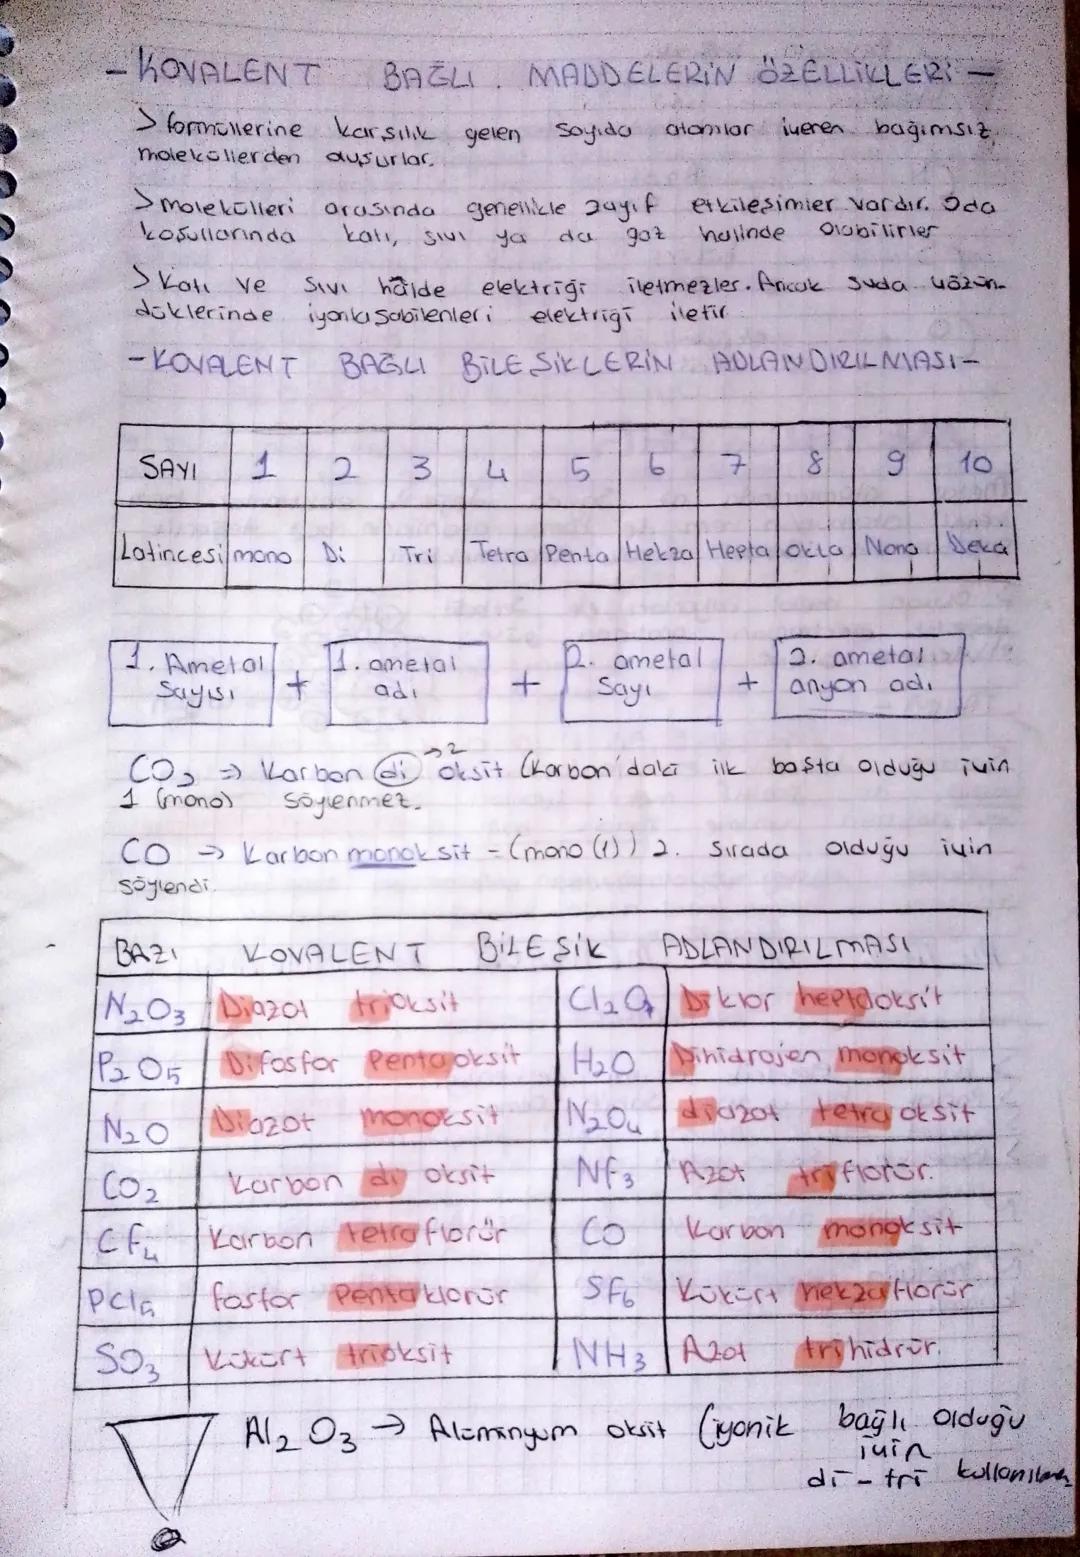 - KOVALENT BAĞLI MADDELERİN ÖZELLİKLERİ -
> formüllerine karşılık gelen sayıda atomlar içeren bağımsız
moleküllerden oluşurlar.
> molekülleri arasında genellikle zayıf etkileşimler vardır. Oda
koşullarında katı, sıvı ya da gaz halinde olabilirler
> Katı ve sıvı hâlde elektriği iletmezler. Ancak suda çözün-
düklerinde iyonlaşabilenleri elektriği iletir
- KOVALENT BAĞLI BİLEŞİKLERİN ADLANDIRILMASI -
SAYI 1 2 3 4 5 6 7 8 9 10
Latincesi mono Di Tri Tetra Penta Hekza Hepta okta Nona Deka
1. Ametal sayısı + 1. ametal adı + 2. ametal sayı + 2. ametal anyon adı
CO₂ => Karbon di oksit (Karbon'daki ilk başta olduğu için
→2
1 (mono) söylenmez.
CO → Karbon monoksit - (mono (1)) 2. sırada olduğu için
söylendi.
BAZI KOVALENT BİLEŞİK ADLANDIRILMASI
N₂O₃ Diazot trioksit Cl₂O₇ Diklor heptaoksit
P₂O₅ Difosfor Pentaoksit H₂O Dihidrojen monoksit
N₂O Diazot monoksit N₂O₄ diazot tetra oksit
CO₂ Karbon di oksit NF₃ Azot triflorür.
CF₄ Karbon tetraflorür CO Karbon monoksit
PCl₅ fosfor Pentaklorür SF₆ Kükürt hekzaflorür
SO₃ Kükürt trioksit NH₃ Azot trihidrür.
Al₂O₃ → Alüminyum oksit (iyonik bağlı olduğu
için
di - tri